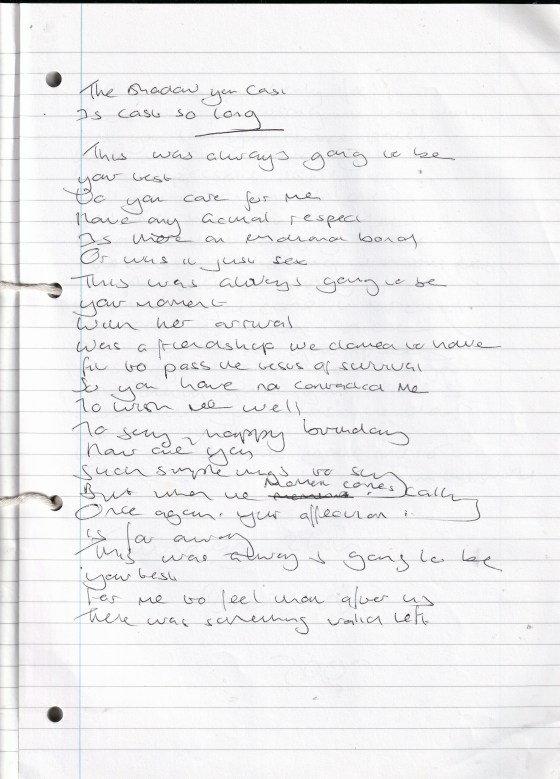 The Shadow you Cast
Is cast so long
This was always going to be
your test
Do you care for me
Have any actual respect
Is there an emotional bond
Or was it just sex
This was always going to be
your moment
With her arrival
Was a friendship we claimed to have
to pass the tests of survival
So you have not contacted me
To wish me well
To say, happy birthday
How are you
Such simple things to say
But when the Moment comes calls
Once again, your affection
is far away
This was always going to be
your test
For me to feel that after us
There was something valid left